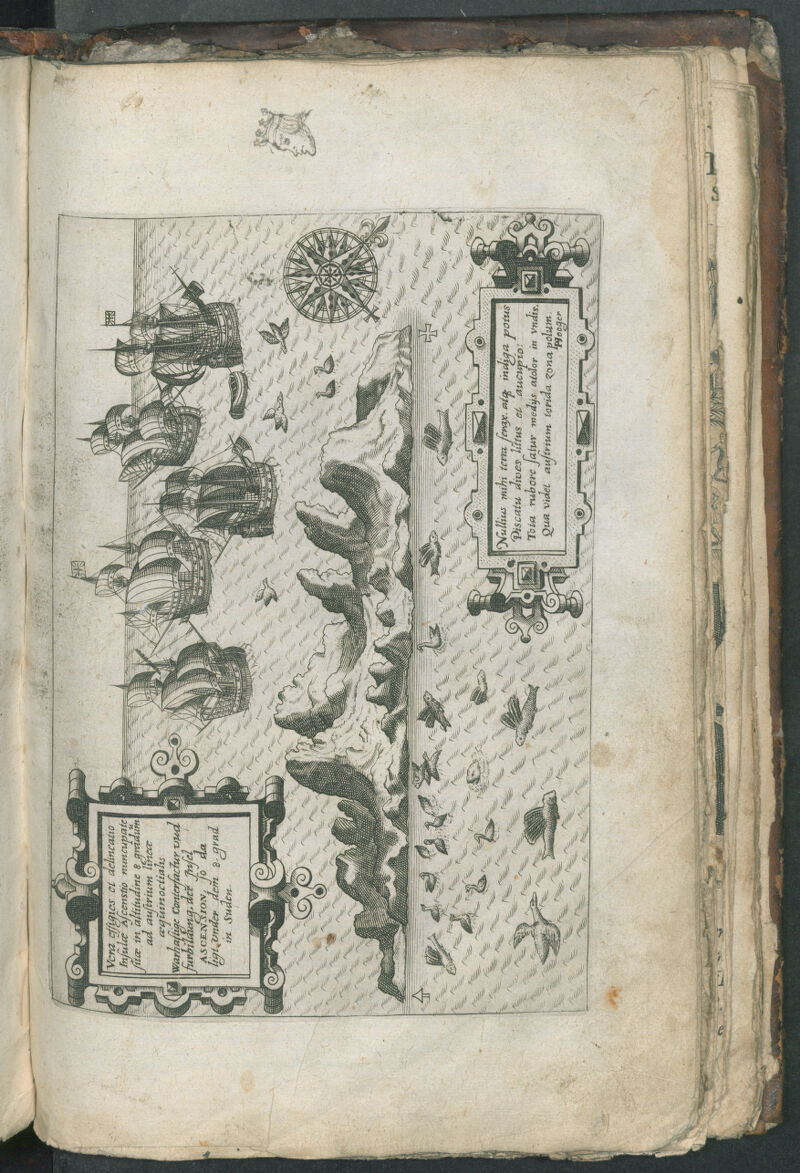 Vera effigies et delineatio
Insulæ Ascensio nuncupate
sitæ in altitudine 8 graduũ
ad austrium lineæ
æquinoctialis
Warhafftige Conterfactur vnd
furbildung, der Insel
ASCENSION, so da
ligt vnder dem 8. grad
in Suden.
Nullius mihi terra ferax atq̃ indiga potus
Piscatu dives litus et aucupio:
Tota rubore satur medijs atolor in vndis,
Qua videt austrium torida zona polum.
Hoeger